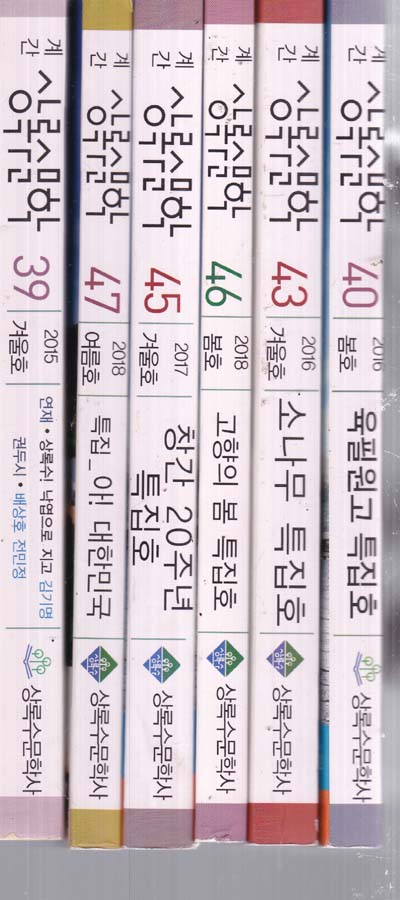 계간
상록수문학
39
2015
겨울호
연재 • 상록수! 낙엽으로 지고 김기명
권두시 • 배상호 전민정
상록수문학사
계간
상록수문학
47
2018
여름호
특집_아! 대한민국
상록수
상록수문학사
계간
상록수문학
45
2017
겨울호
창간 20주년
특집호
상록수
상록수문학사
계간
상록수문학
46
2018
봄호
고향의 봄 특집호
상록수
상록수문학사
계간
상록수문학
43
2016
겨울호
소나무 특집호
상록수
상록수문학사
계간
상록수문학
40
2016
봄호
육필원고 특집호
상록수문학사